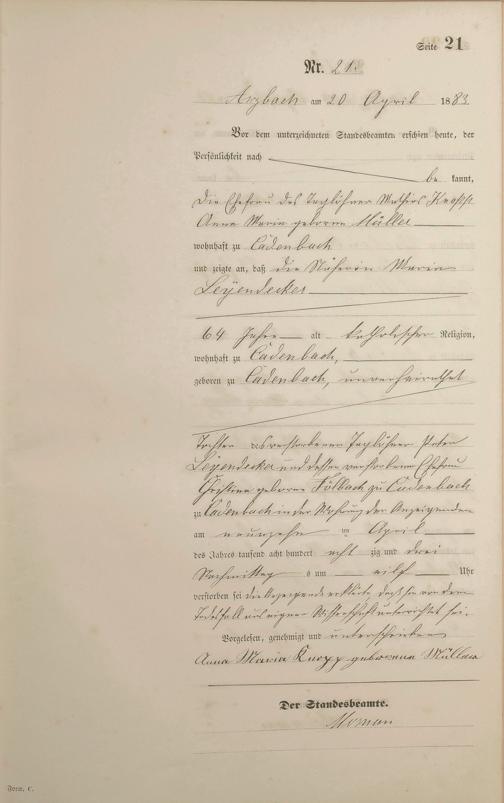 Seite 21
Nr. 21.
Arzbach am 20 April 1883
Vor dem unterzeichneten Standesbeamten erschien heute, der
Persönlichkeit nach
be kannt,
die Ehefrau des Taglöhner Mathias
Anna Maria geborene Müller
wohnhaft zu Cadenbach
und zeigte an, daß die Näherin Maria
Leyendecker
64 Jahre alt katholischer Religion,
wohnhaft zu Cadenbach,
geboren zu Cadenbach, unverheirathet
Tochter des verstorbenen Taglöhner Peter
Leyendecker und dessen verstorbene Ehefrau
Christina geborene Fölbach zu Cadenbach
zu Cadenbach in der Wohnung der Anzeigenden
am neunzehn ten April
des Jahres tausend acht hundert acht zig und drei
Nachmittag s um eilf Uhr
verstorben sei die Anzeigende erklärte, daß sie von dem
Todesfall aus eigner Wissenschaft unterrichtet sei.
Vorgelesen, genehmigt und unterschrieben
Anna Maria Knopp geborenne Müller
Der Standesbeamte.
Form. C.